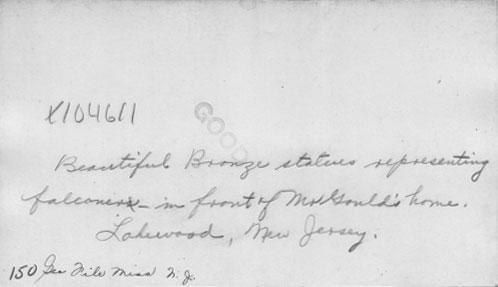 X104611
GOOD
Beautiful Bronze statues representing
falconers - in front of Mr. Gould's home.
Lakewood, New Jersey.
150 Geo File Misc N. J.